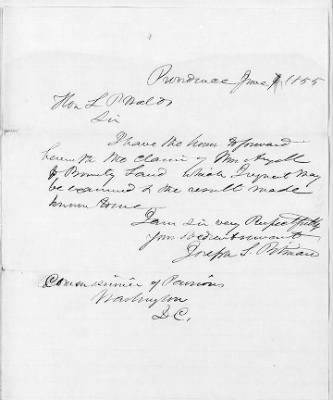 Providence June 1855
Hon L P Waldo
Sir
I have the honor to forward
herewith the claim of Wm
for Bounty Land which I request may
be examined & the result made
known to me
I am sir very Respectfully
your obedient servant
Joseph S. Pitman
Commissioner of Pensions
Washington
D.C.